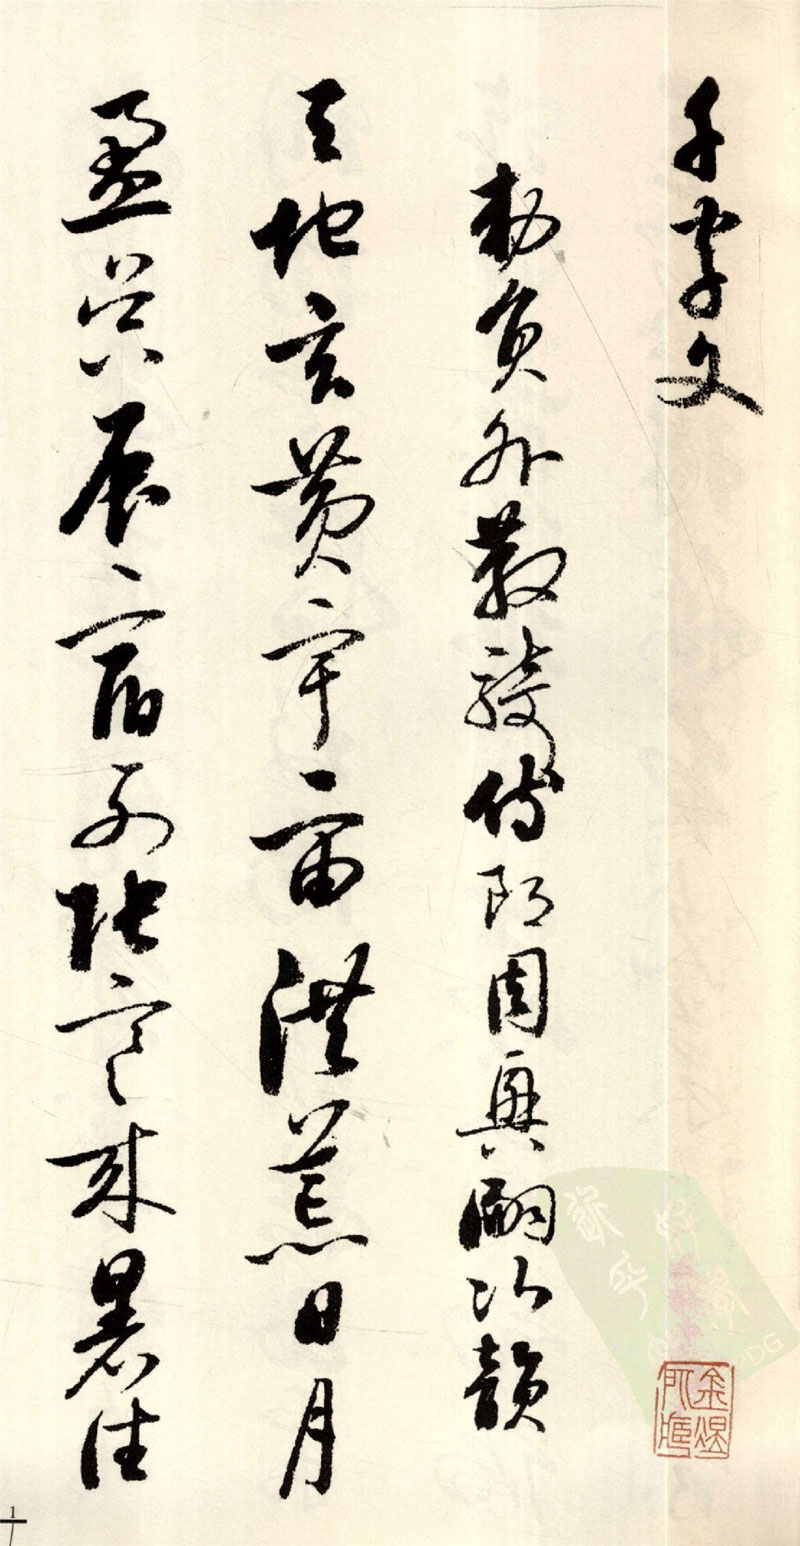 千字文
勅員外散騎侍郎周興嗣次韻
天地玄黃宇宙洪荒日月
盈昃辰宿列張寒來暑往
1